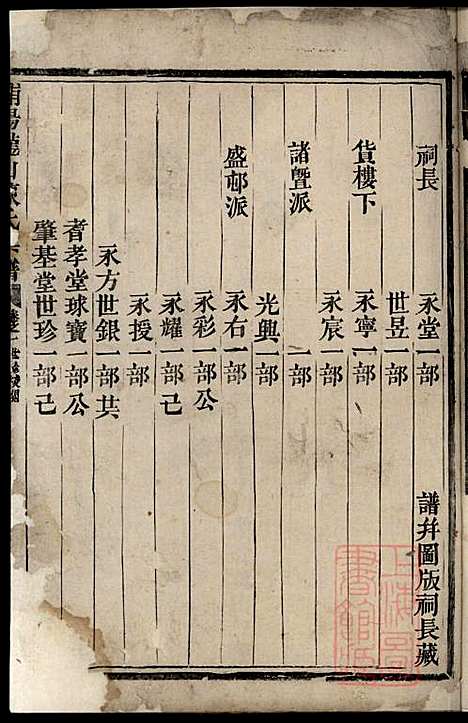 祠長　永堂一部　譜并圖版祠長藏
世昱一部
貨樓下　永寧一部
永宸一部
諸暨派
光興一部
盛邨派　永右一部
永彩一部公
永耀一部己
永授一部
永方世銀一部共
耆孝堂球寶一部公
肇基堂世珍一部己